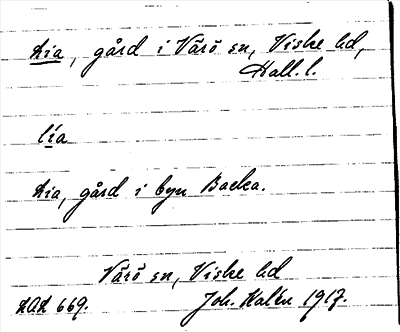 Lia, gård i Värö sn, Viske hd,
Hall. l.
lía
Lia, gård i byn Backa.
Värö sn, Viske hd
DAL 669. Joh. Kalén 1917.